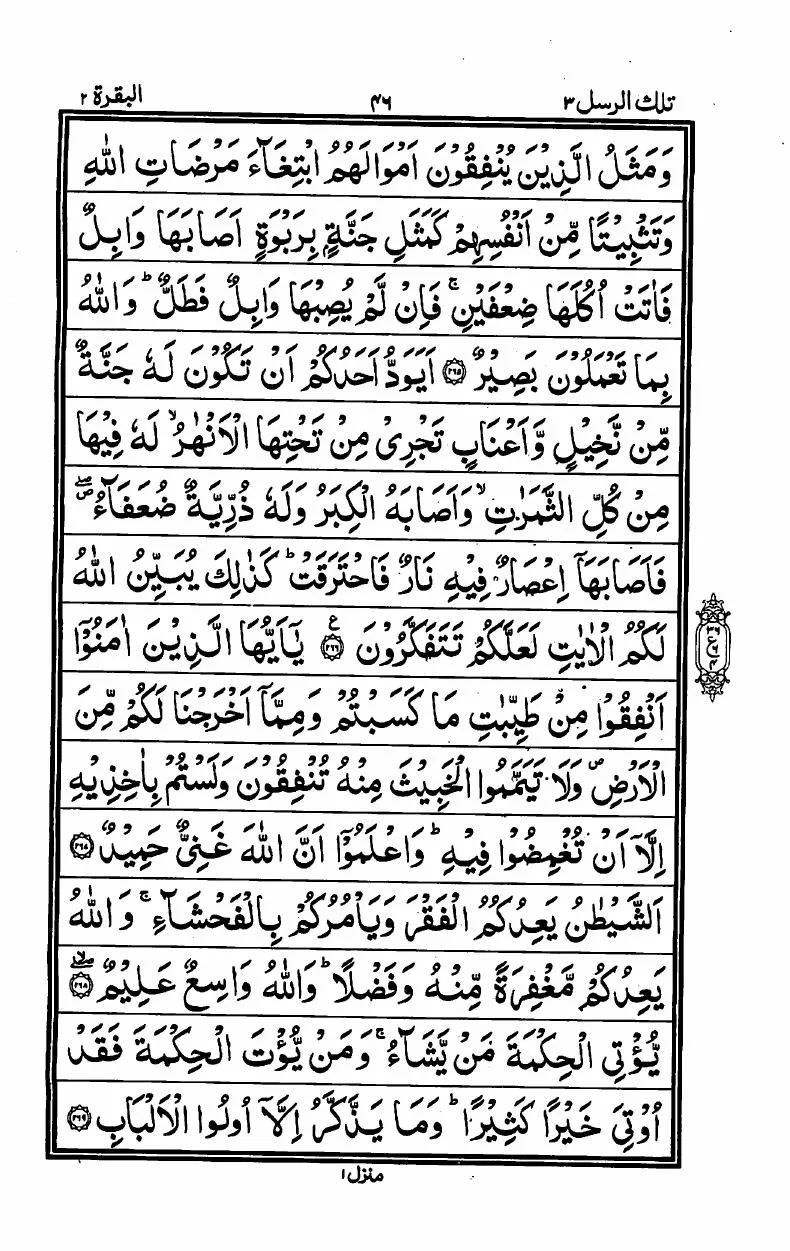 تلك الرسل ٣ ٤٦ البقرة ٢
وَمَثَلُ الَّذِيْنَ يُنْفِقُوْنَ اَمْوَالَهُمُ ابْتِغَآءَ مَرْضَاتِ اللّٰهِ
وَتَثْبِيْتًا مِّنْ اَنْفُسِهِمْ كَمَثَلِ جَنَّةٍۭ بِرَبْوَةٍ اَصَابَهَا وَابِلٌ
فَاٰتَتْ اُكُلَهَا ضِعْفَيْنِ ۚ فَاِنْ لَّمْ يُصِبْهَا وَابِلٌ فَطَلٌّ ؕ وَاللّٰهُ
بِمَا تَعْمَلُوْنَ بَصِيْرٌ ﴿۲۶۵﴾ اَيَوَدُّ اَحَدُكُمْ اَنْ تَكُوْنَ لَهٗ جَنَّةٌ
مِّنْ نَّخِيْلٍ وَّاَعْنَابٍ تَجْرِىْ مِنْ تَحْتِهَا الْاَنْهٰرُ ۙ لَهٗ فِيْهَا
مِنْ كُلِّ الثَّمَرٰتِ ۙ وَاَصَابَهُ الْكِبَرُ وَلَهٗ ذُرِّيَّةٌ ضُعَفَآءُ ۖ ص
فَاَصَابَهَاۤ اِعْصَارٌ فِيْهِ نَارٌ فَاحْتَرَقَتْ ؕ كَذٰلِكَ يُبَيِّنُ اللّٰهُ
لَكُمُ الْاٰيٰتِ لَعَلَّكُمْ تَتَفَكَّرُوْنَ ﴿۲۶۶﴾ ع يٰۤاَيُّهَا الَّذِيْنَ اٰمَنُوْۤا
اَنْفِقُوْا مِنْ طَيِّبٰتِ مَا كَسَبْتُمْ وَمِمَّاۤ اَخْرَجْنَا لَكُمْ مِّنَ
الْاَرْضِ ص وَلَا تَيَمَّمُوا الْخَبِيْثَ مِنْهُ تُنْفِقُوْنَ وَلَسْتُمْ بِاٰخِذِيْهِ
اِلَّاۤ اَنْ تُغْمِضُوْا فِيْهِ ؕ وَاعْلَمُوْۤا اَنَّ اللّٰهَ غَنِىٌّ حَمِيْدٌ ﴿۲۶۷﴾
اَلشَّيْطٰنُ يَعِدُكُمُ الْفَقْرَ وَيَاْمُرُكُمْ بِالْفَحْشَآءِ ۚ وَاللّٰهُ
يَعِدُكُمْ مَّغْفِرَةً مِّنْهُ وَفَضْلًا ؕ وَاللّٰهُ وَاسِعٌ عَلِيْمٌ ﴿۲۶۸﴾
يُّؤْتِى الْحِكْمَةَ مَنْ يَّشَآءُ ۚ وَمَنْ يُّؤْتَ الْحِكْمَةَ فَقَدْ
اُوْتِىَ خَيْرًا كَثِيْرًا ؕ وَمَا يَذَّكَّرُ اِلَّاۤ اُولُوا الْاَلْبَابِ ﴿۲۶۹﴾
منزل ۱